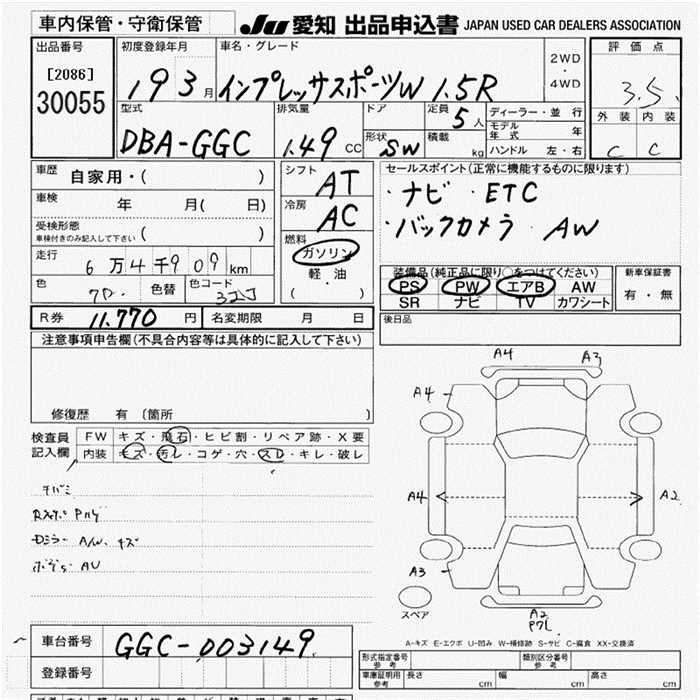 車内保管・守衛保管 JU 愛知 出品申込書 JAPAN USED CAR DEALERS ASSOCIATION
出品番号 初度登録年月 車名・グレード 2WD・4WD 評価点
[2086]
30055 19 3月 インプレッサスポーツW 1.5R 3.5
型式 排気量 ドア 定員 5人 ディーラー・並行 外装 内装
DBA-GGC 1.49 CC 形状 SW 積載 kg モデル年式 年 C C
ハンドル 左・右
車歴 自家用・( ) シフト AT セールスポイント(正常に機能するものに限ります)
車検 年 月( 日) 冷房 AC ・ナビ・ETC
受検形態 ( ) ・バックカメラ・AW
車検付きのみ記入して下さい
走行 6万4千909km 燃料 ガソリン 装備品(純正品に限り○をつけてください) 新車保証書
色 色替 色コード 32J 軽・油 PS PW エアB AW 有・無
( ) SR ナビ TV カワシート
R券 11,770 円 名変期限 月 日 後日品
注意事項申告欄(不具合内容等は具体的に記入して下さい)
修復歴 有 〔箇所 〕
検査員 FW キズ・飛石・ヒビ割・リペア跡・X要
記入欄 内装 キズ・汚レ・コゲ・穴・スレ・キレ・破レ
A4 A3
A4
A4 A2
A3
スペア
A2
A-キズ E-エクボ U-凹み W-補修跡 S-サビ C-腐食 XX-交換済
車台番号 GGC-003149
登録番号
形式指定番号 参考 類別区分番号 参考
車庫証明用 参考 長さ cm 幅 cm 高さ cm